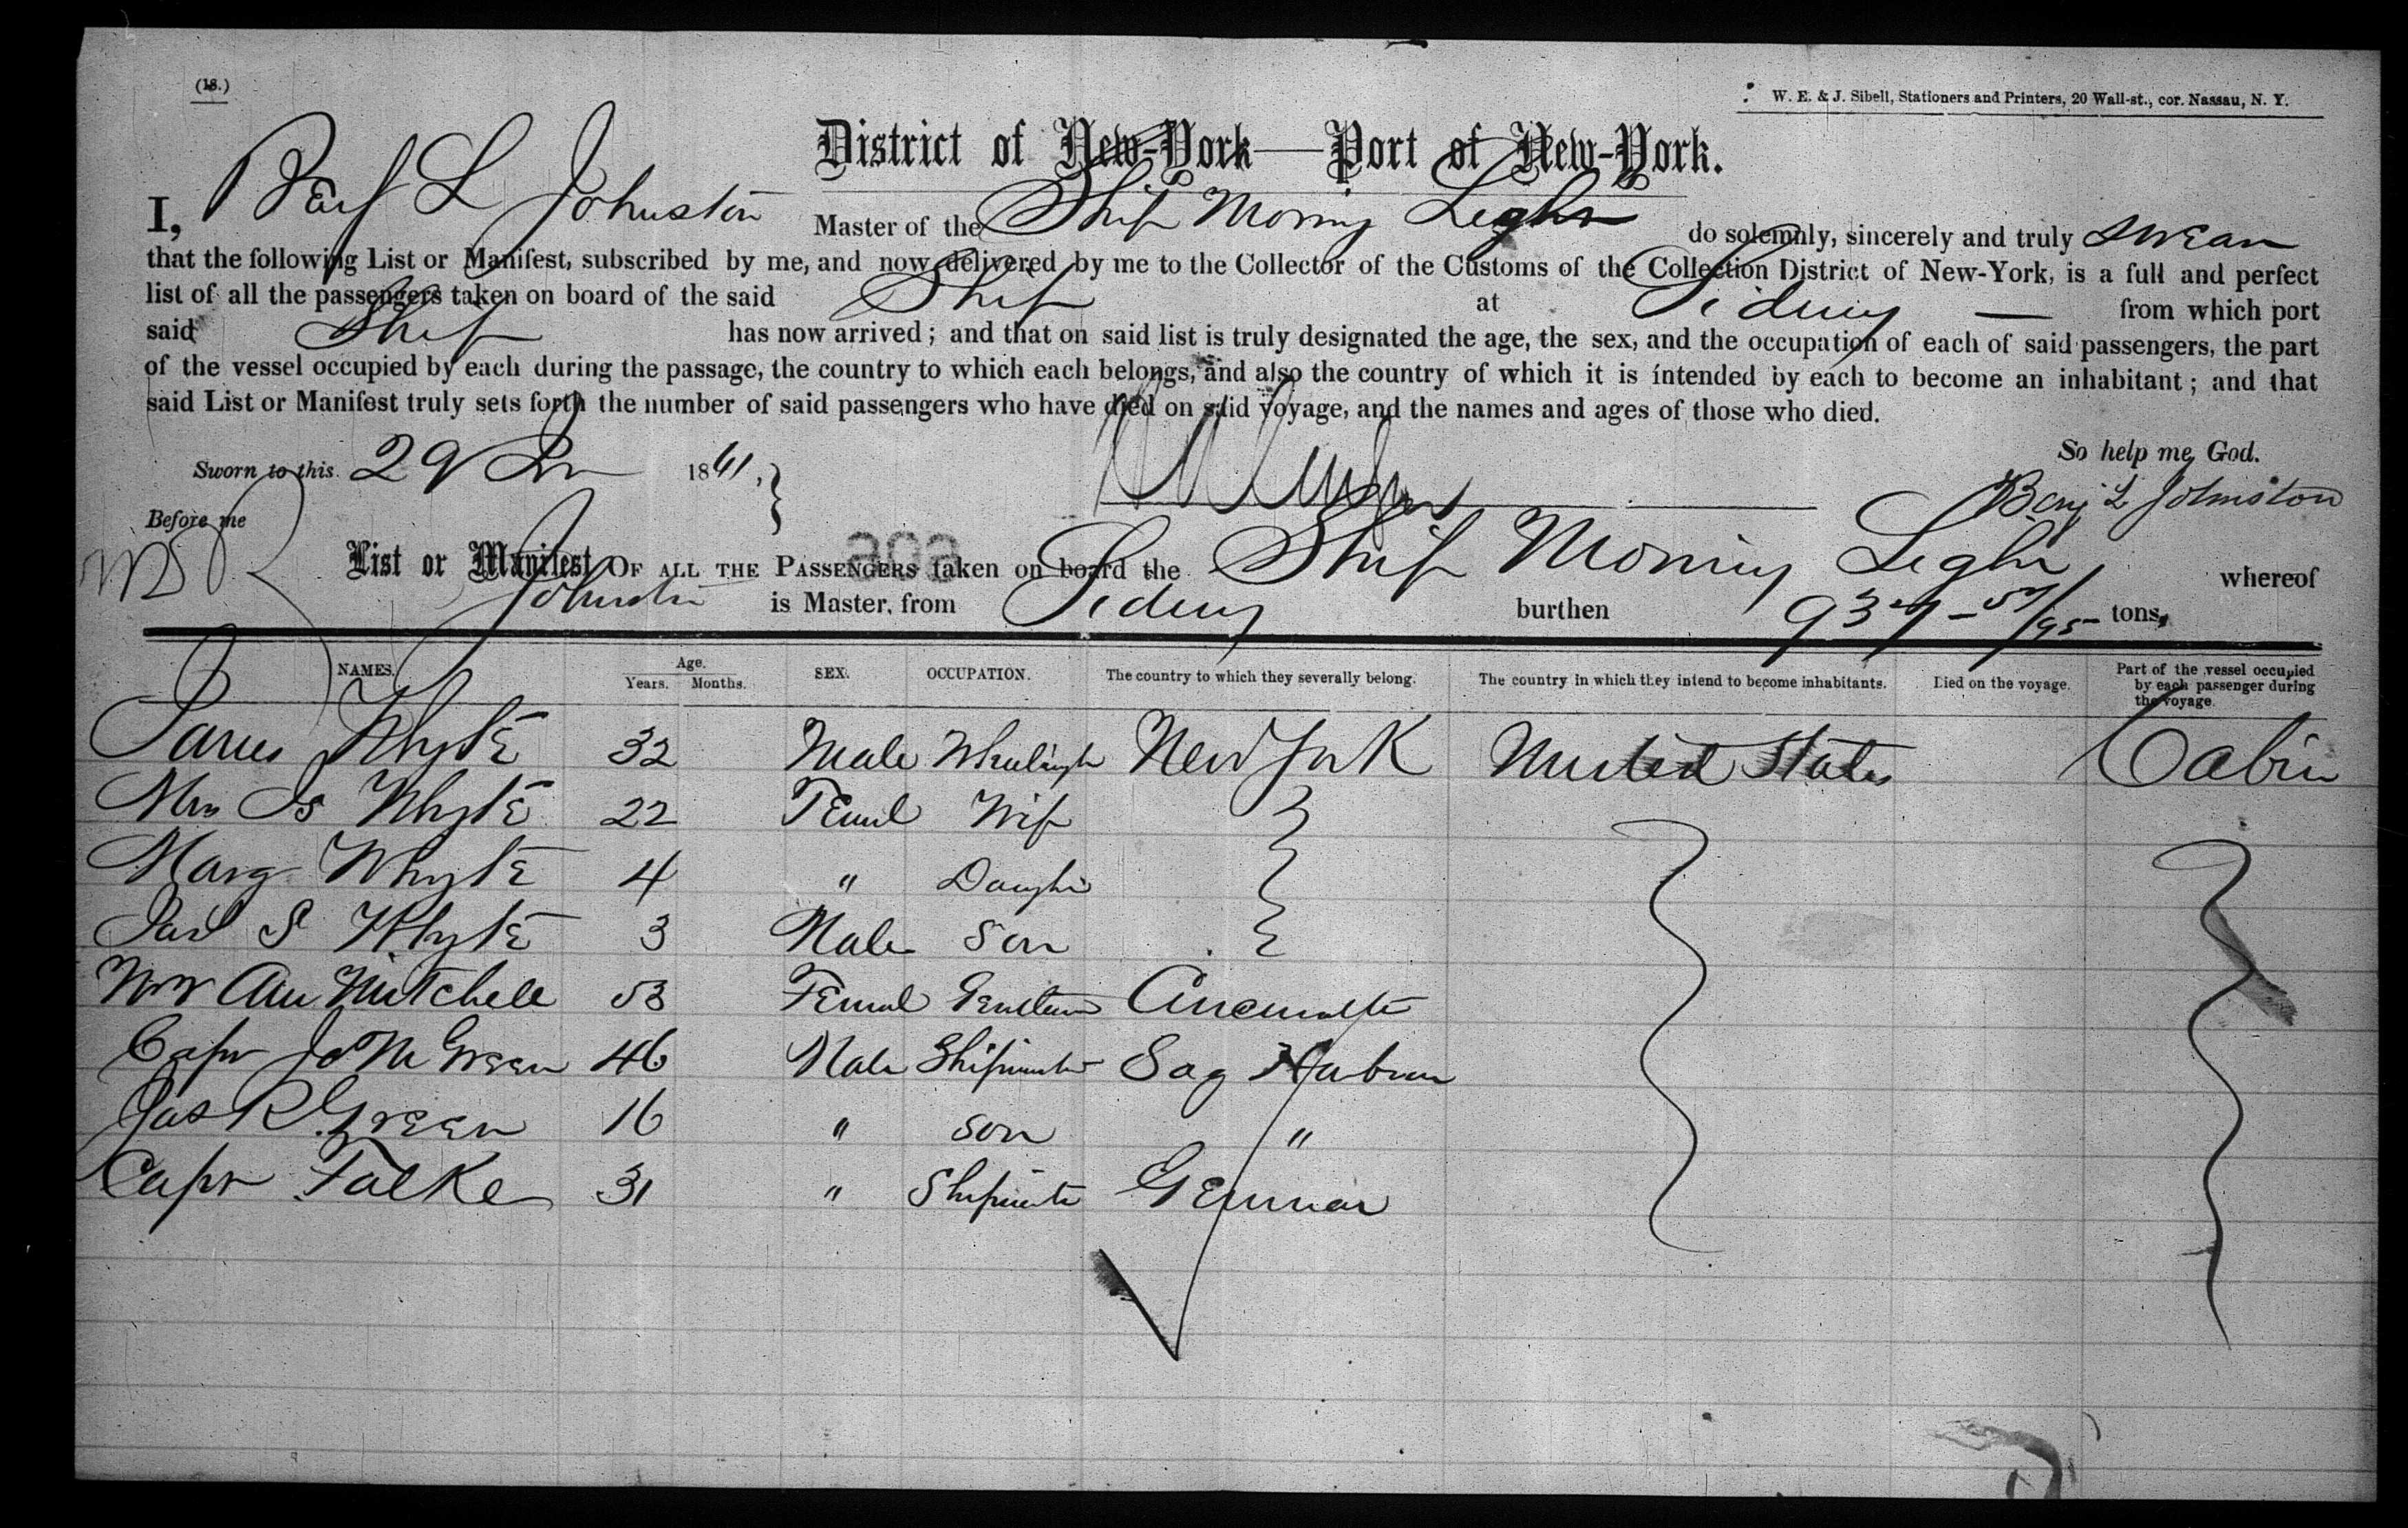 (18.)
W. E. & J. Sibell, Stationers and Printers, 20 Wall-st., cor. Nassau, N. Y.
District of New-York—Port of New-York.
I, Benj L Johnston Master of the Ship Morning Light do solemnly, sincerely and truly swear
that the following List or Manifest, subscribed by me, and now delivered by me to the Collector of the Customs of the Collection District of New-York, is a full and perfect
list of all the passengers taken on board of the said Ship at Sidney — from which port
said Ship has now arrived; and that on said list is truly designated the age, the sex, and the occupation of each of said passengers, the part
of the vessel occupied by each during the passage, the country to which each belongs, and also the country of which it is intended by each to become an inhabitant; and that
said List or Manifest truly sets forth the number of said passengers who have died on said voyage, and the names and ages of those who died.
So help me God.
Sworn to this 29 1861,
Benj L Johnston
Before me
List or Manifest OF ALL THE PASSENGERS taken on board the Ship Morning Light whereof
Johnston is Master, from Sidney burthen 937-57/95 tons,
NAMES. Age. Years. Months. SEX. OCCUPATION. The country to which they severally belong. The country in which they intend to become inhabitants. Died on the voyage. Part of the vessel occupied by each passenger during the voyage.
James Whyte 32 Male New York United States Cabin
Mrs Js Whyte 22 Femal Wife
Marg Whyte 4 " Daughter
Whyte 3 Male Son
Ann Mitchell 53 Femal Cincinnati
Capt Jo M Green 46 Male Shipmaster Sag Harbour
Jas R Green 16 " son "
Capt Falke 31 " Shipmaster German